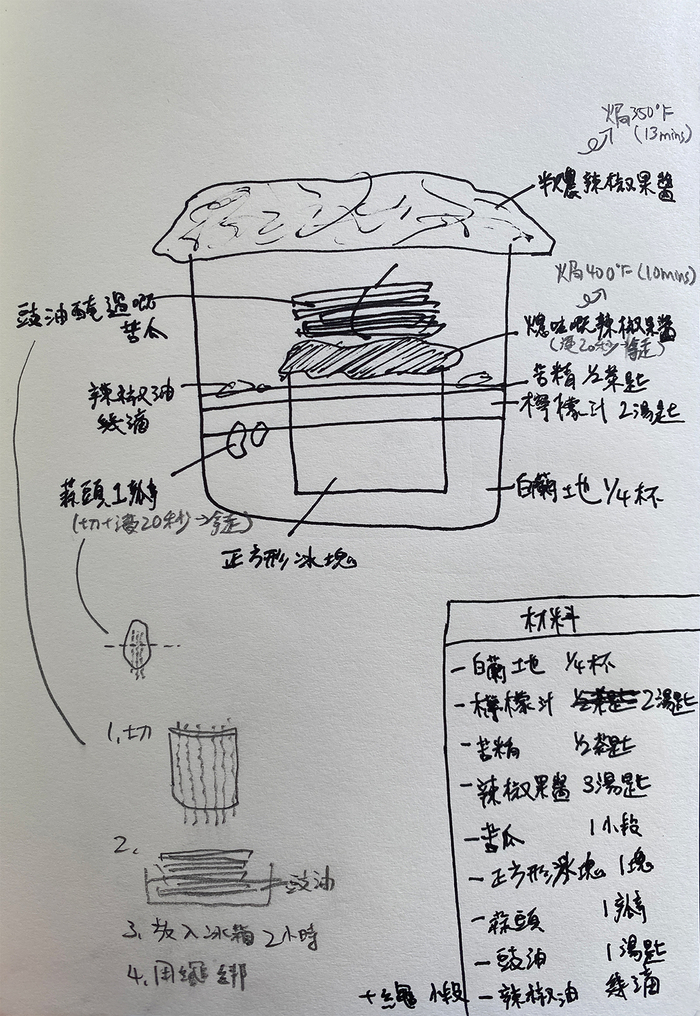 焗350°F
(13mins)
半濃辣椒果醬
焗400°F(10mins)
豉油醃過嘅
苦瓜
熄咗嘅辣椒果醬
(浸20秒→拿走)
辣椒油
幾滴
苦精 ½茶匙
檸檬汁 2湯匙
蒜頭1瓣
(切+浸20秒→拿走)
白蘭土地 ¼杯
正方形冰塊
1.切
2.
豉油
3.放入冰箱2小時
4.用繩綁
材料
-白蘭土地 ¼杯
-檸檬汁 2湯匙
-苦精 ½茶匙
-辣椒果醬 3湯匙
-苦瓜 1小段
-正方形冰塊 1塊
-蒜頭 1瓣
-豉油 1湯匙
-辣椒油 幾滴
+繩 小段